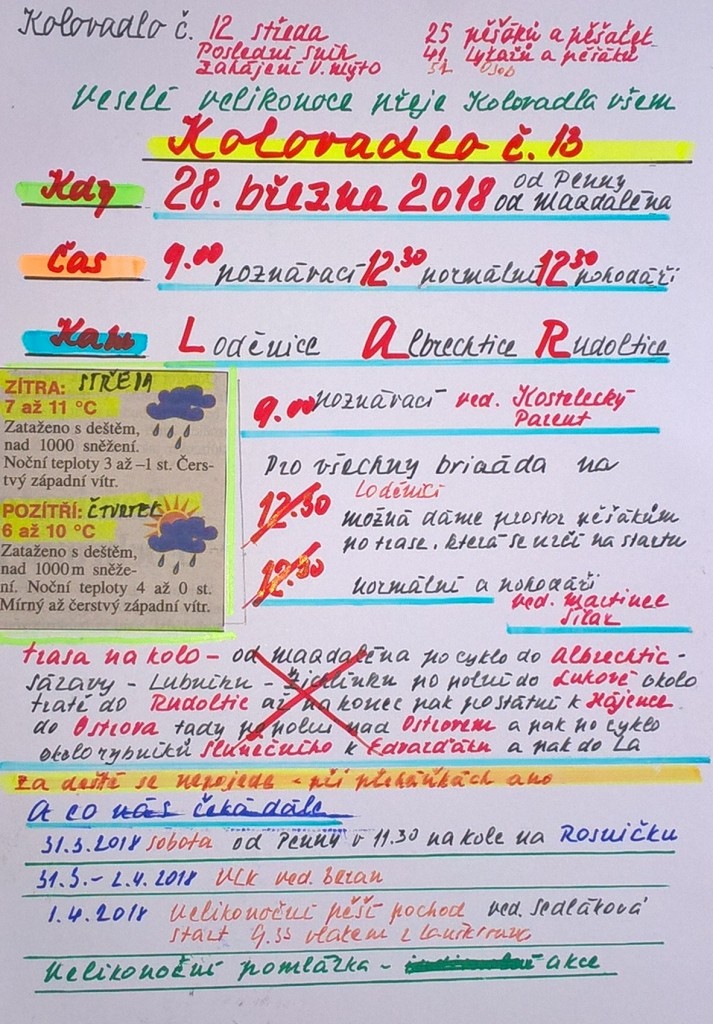 Kolovadlo č. 12 středa 25 pěšáků a pěšaček
Poslední sník 41 Lyžařů a pěšáků
Zahájení V. Mýto 51 osob
Veselé velikonoce přeje Kolovadla všem
Kolovadlo č. 13
Kdy 28. března 2018 od Penny
od Magdaléna
Čas 9.00 poznávací 12.30 normální 12.30 pohodáři
Kam Loděnice Albrechtice Rudoltice
ZÍTRA: STŘEDA
7 až 11 °C
Zataženo s deštěm,
nad 1000 sněžení.
Noční teploty 3 až –1 st. Čers-
tvý západní vítr.
POZÍTŘÍ: ČTVRTEK
6 až 10 °C
Zataženo s deštěm,
nad 1000 m sněže-
ní. Noční teploty 4 až 0 st.
Mírný až čerstvý západní vítr.
9.00 poznávací ved. Kostelecký
Parent
Pro všechny brigáda na
Loděnici
12.30 možná dáme prostor pěšákům
po trase, která se určí na startu
12.30 normální a pohodáři
ved. Martinec
Šilar
trasa na kolo – od Magdaléna po cyklo do Albrechtic -
Sázavy - Lubníku - Žichlínku po polní do Lukové okolo
tratě do Rudoltic až na konec pak po státní k Hájence
do Ostrova tady po polní nad Ostrovem a pak po cyklo
okolo rybníků Slunečního k Edvarďáku a pak do LA
Za deště se nepojede - při přeháňkách ano
A co nás čeká dále
31.3.2018 sobota od Penny v 11.30 na kole na Rosničku
31.3. – 2.4.2018 VLK ved. Beran
1.4.2018 Velikonoční pěší pochod ved. Sedláková
start 9.55 vlakem z
Velikonoční pomlázka – akce